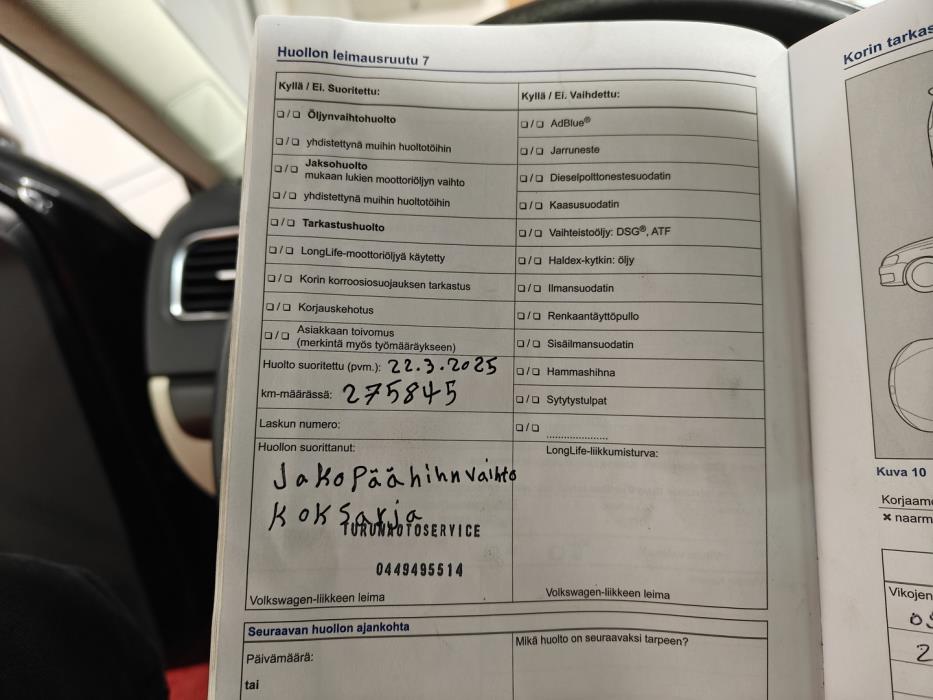 Huollon leimausruutu 7
Kyllä / Ei. Suoritettu:
❑ / ❑ Öljynvaihtohuolto
❑ / ❑ yhdistettynä muihin huoltotöihin
❑ / ❑ Jaksohuolto
mukaan lukien moottoriöljyn vaihto
❑ / ❑ yhdistettynä muihin huoltotöihin
❑ / ❑ Tarkastushuolto
❑ / ❑ LongLife-moottoriöljyä käytetty
❑ / ❑ Korin korroosiosuojauksen tarkastus
❑ / ❑ Korjauskehotus
❑ / ❑ Asiakkaan toivomus
(merkintä myös työmääräykseen)
Huolto suoritettu (pvm.): 22.3.2025
km-määrässä: 275845
Laskun numero:
Huollon suorittanut:
Jakopäähihnvaihto
Koksarja
TURUNAUTOSERVICE
0449495514
Volkswagen-liikkeen leima
Kyllä / Ei. Vaihdettu:
❑ / ❑ AdBlue®
❑ / ❑ Jarruneste
❑ / ❑ Dieselpolttonestesuodatin
❑ / ❑ Kaasusuodatin
❑ / ❑ Vaihteistoöljy: DSG®, ATF
❑ / ❑ Haldex-kytkin: öljy
❑ / ❑ Ilmansuodatin
❑ / ❑ Renkaantäyttöpullo
❑ / ❑ Sisäilmansuodatin
❑ / ❑ Hammashihna
❑ / ❑ Sytytystulpat
❑ / ❑ .....................
LongLife-liikkumisturva:
Volkswagen-liikkeen leima
Seuraavan huollon ajankohta
Päivämäärä:
tai
Mikä huolto on seuraavaksi tarpeen?
Korin
Kuva 10
✖
Vikojen